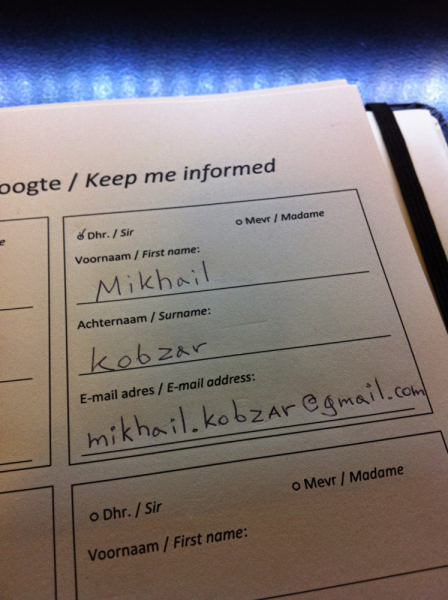 oogte / Keep me informed
e
Dhr. / Sir
Mevr / Madame
Voornaam / First name:
Mikhail
Achternaam / Surname:
Kobzar
E-mail adres / E-mail address:
mikhail.kobzar@gmail.com
Dhr. / Sir
Mevr / Madame
Voornaam / First name: